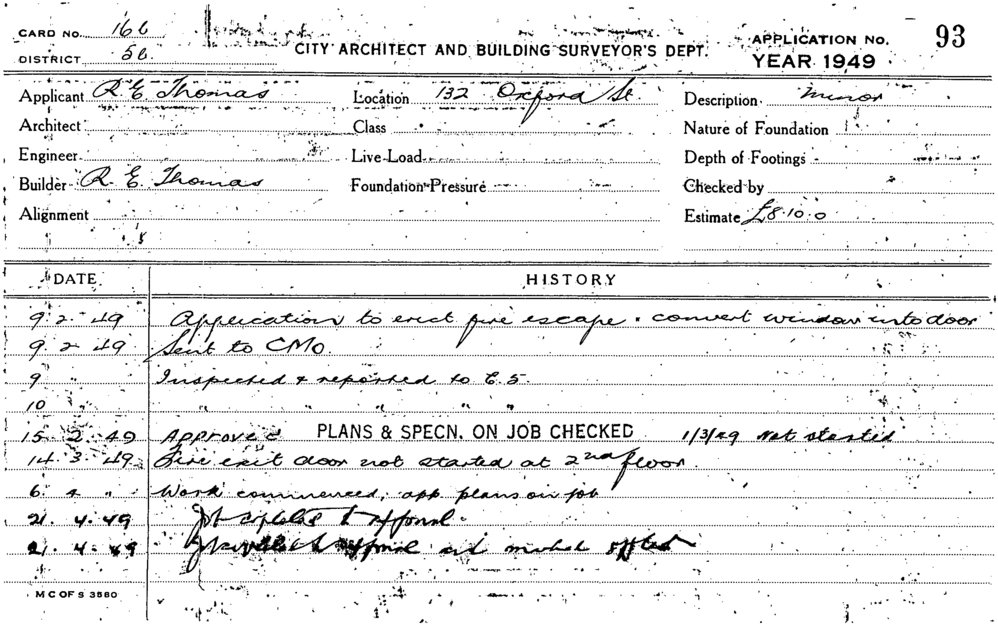 CARD NO. 16b
CITY ARCHITECT AND BUILDING SURVEYOR'S DEPT.
APPLICATION NO. 93
DISTRICT 5b.
YEAR 1949
Applicant R E Thomas Location 132 Oxford St. Description minor
Architect Class Nature of Foundation
Engineer Live Load Depth of Footings
Builder R. E. Thomas Foundation Pressure Checked by
Alignment Estimate £8.10.0
DATE HISTORY
9.2.49 Application to erect fire escape & convert window into door
9 2 49 Sent to CMO.
9 Inspected & reported to E.S.
10 " " " "
15 2 49 Approved PLANS & SPECN. ON JOB CHECKED 1/3/49 Not started
14 3 49 Fire exit door not started at 2nd floor.
6 4 " Work commenced, app. plans on job
21. 4. 49 Job completed to approval.
21. 4. 49
M C OF S 3580